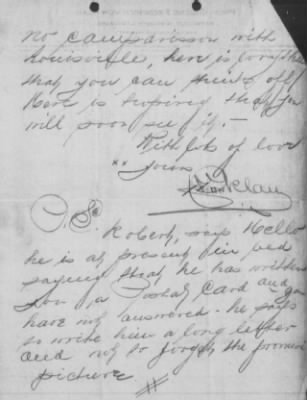 no comparison with
Louisville, here is
that you can think of
Here is hoping that you
will soon see it. -
With lots of love
yours
P. S.
Robert, says Hello
he is at present in bed
saying that he has written
you a Postal Card and you
have not answered. he says
so write him a long letter
and not to forget the promised
picture